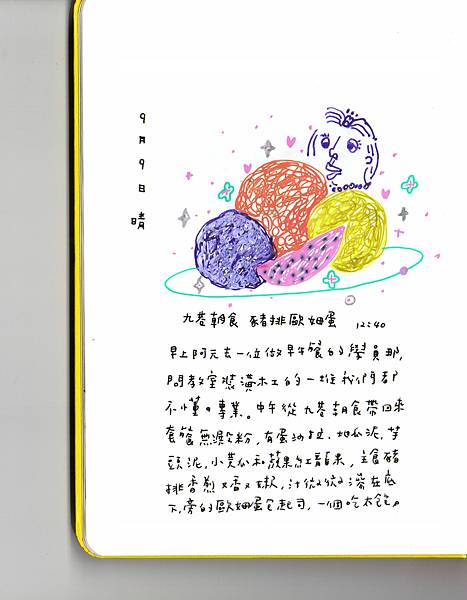 9月9日 晴
九巷朝食 豬排歐姆蛋 12:40
早上阿元去一位做早午餐的學員那,
問教室裝潢木工的一些我們都
不懂的專業。中午從九巷朝食帶回來
套餐無澱粉,有蛋沙拉、地瓜泥,芋
頭泥,小黃瓜和蘋果紅龍果,主食豬
排香煎又香又嫩,汁微微溶在底
下,旁的歐姆蛋包起司,一個吃太飽。